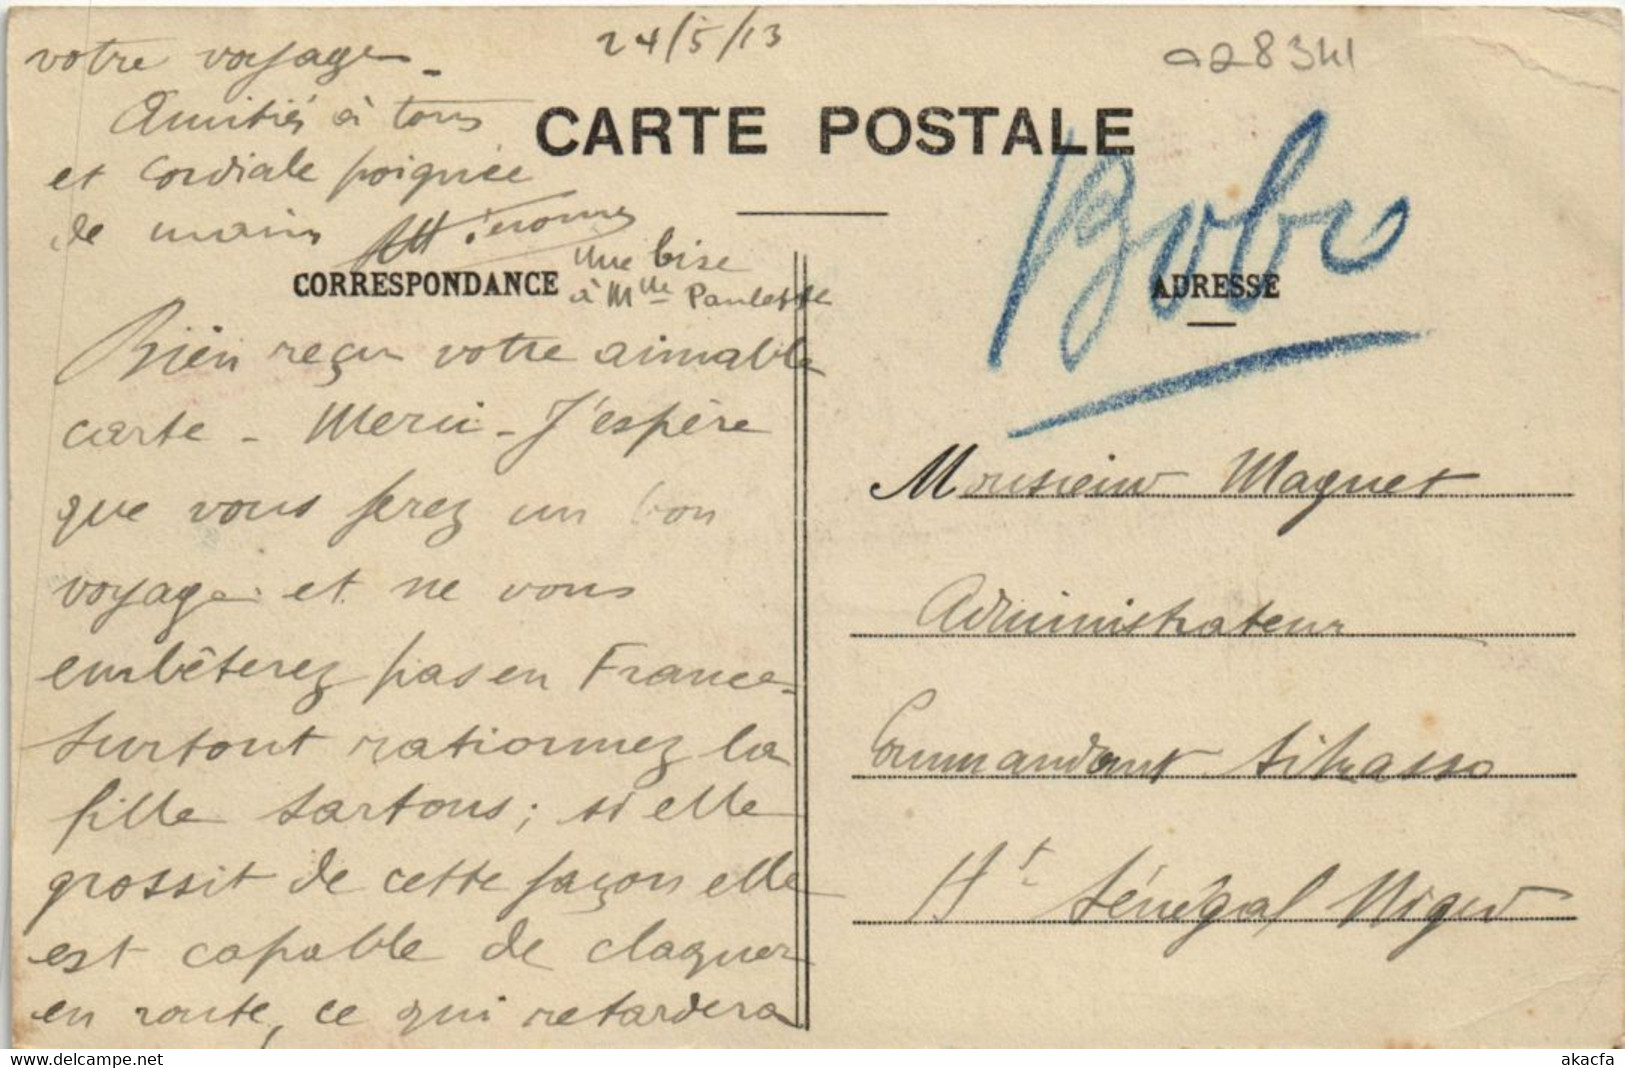 24/5/13
a28341
CARTE POSTALE
CORRESPONDANCE
Bien reçu votre aimable
carte - Merci - J'espère
que vous ferez un bon
voyage et ne vous
embêterez pas en France.
Surtout rationnez la
fille Sartous; si elle
grossit de cette façon elle
est capable de claquer
en route, ce qui retardera
votre voyage -
Amitiés à tous
et cordiale poignée
de main
Une bise
à Mlle Paulette
Bobo
ADRESSE
Monsieur Maquet
Administrateur
Commandant Sikasso
Ht Sénégal Niger
www.delcampe.net
akacfa